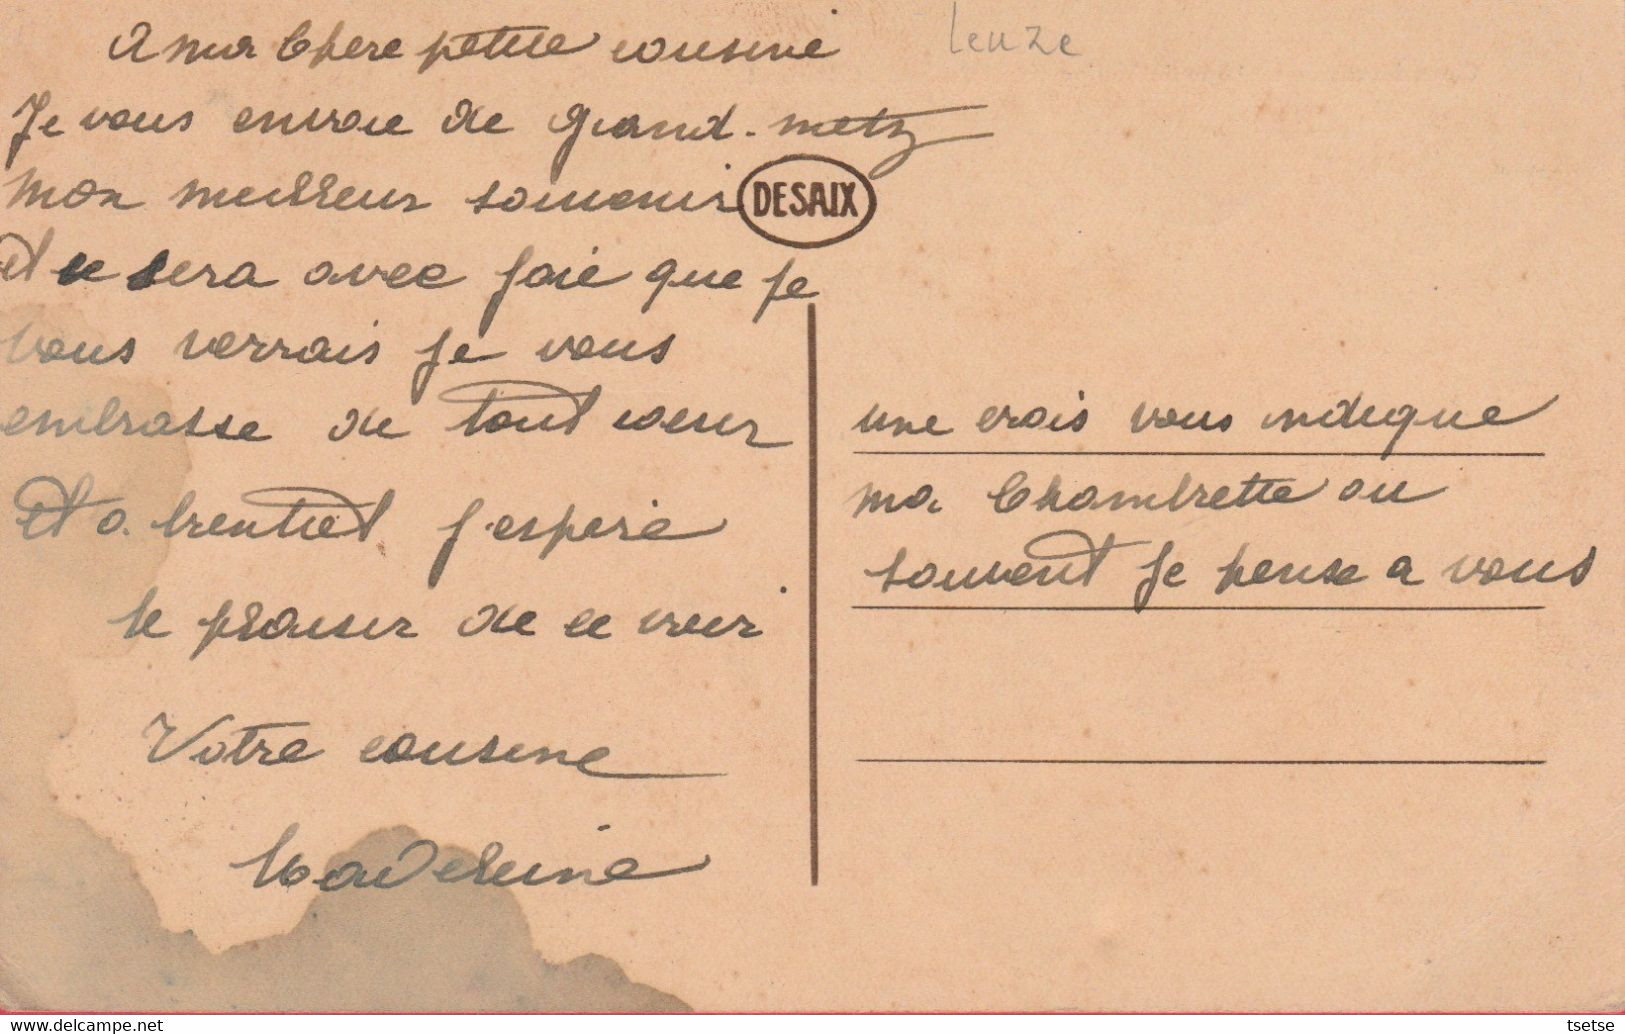 A ma Chere petite cousine
Leuze
Je vous envoie de Grand-metz
mon meilleur souvenir
DESAIX
et ce sera avec joie que je
vous verrais je vous
embrasse de tout coeur
et a bientiet j'espere
le plaisir de ce voir
Votre cousine
Madeleine
une crois vous indique
ma Chambrette ou
souvent je pense a vous
tsetse